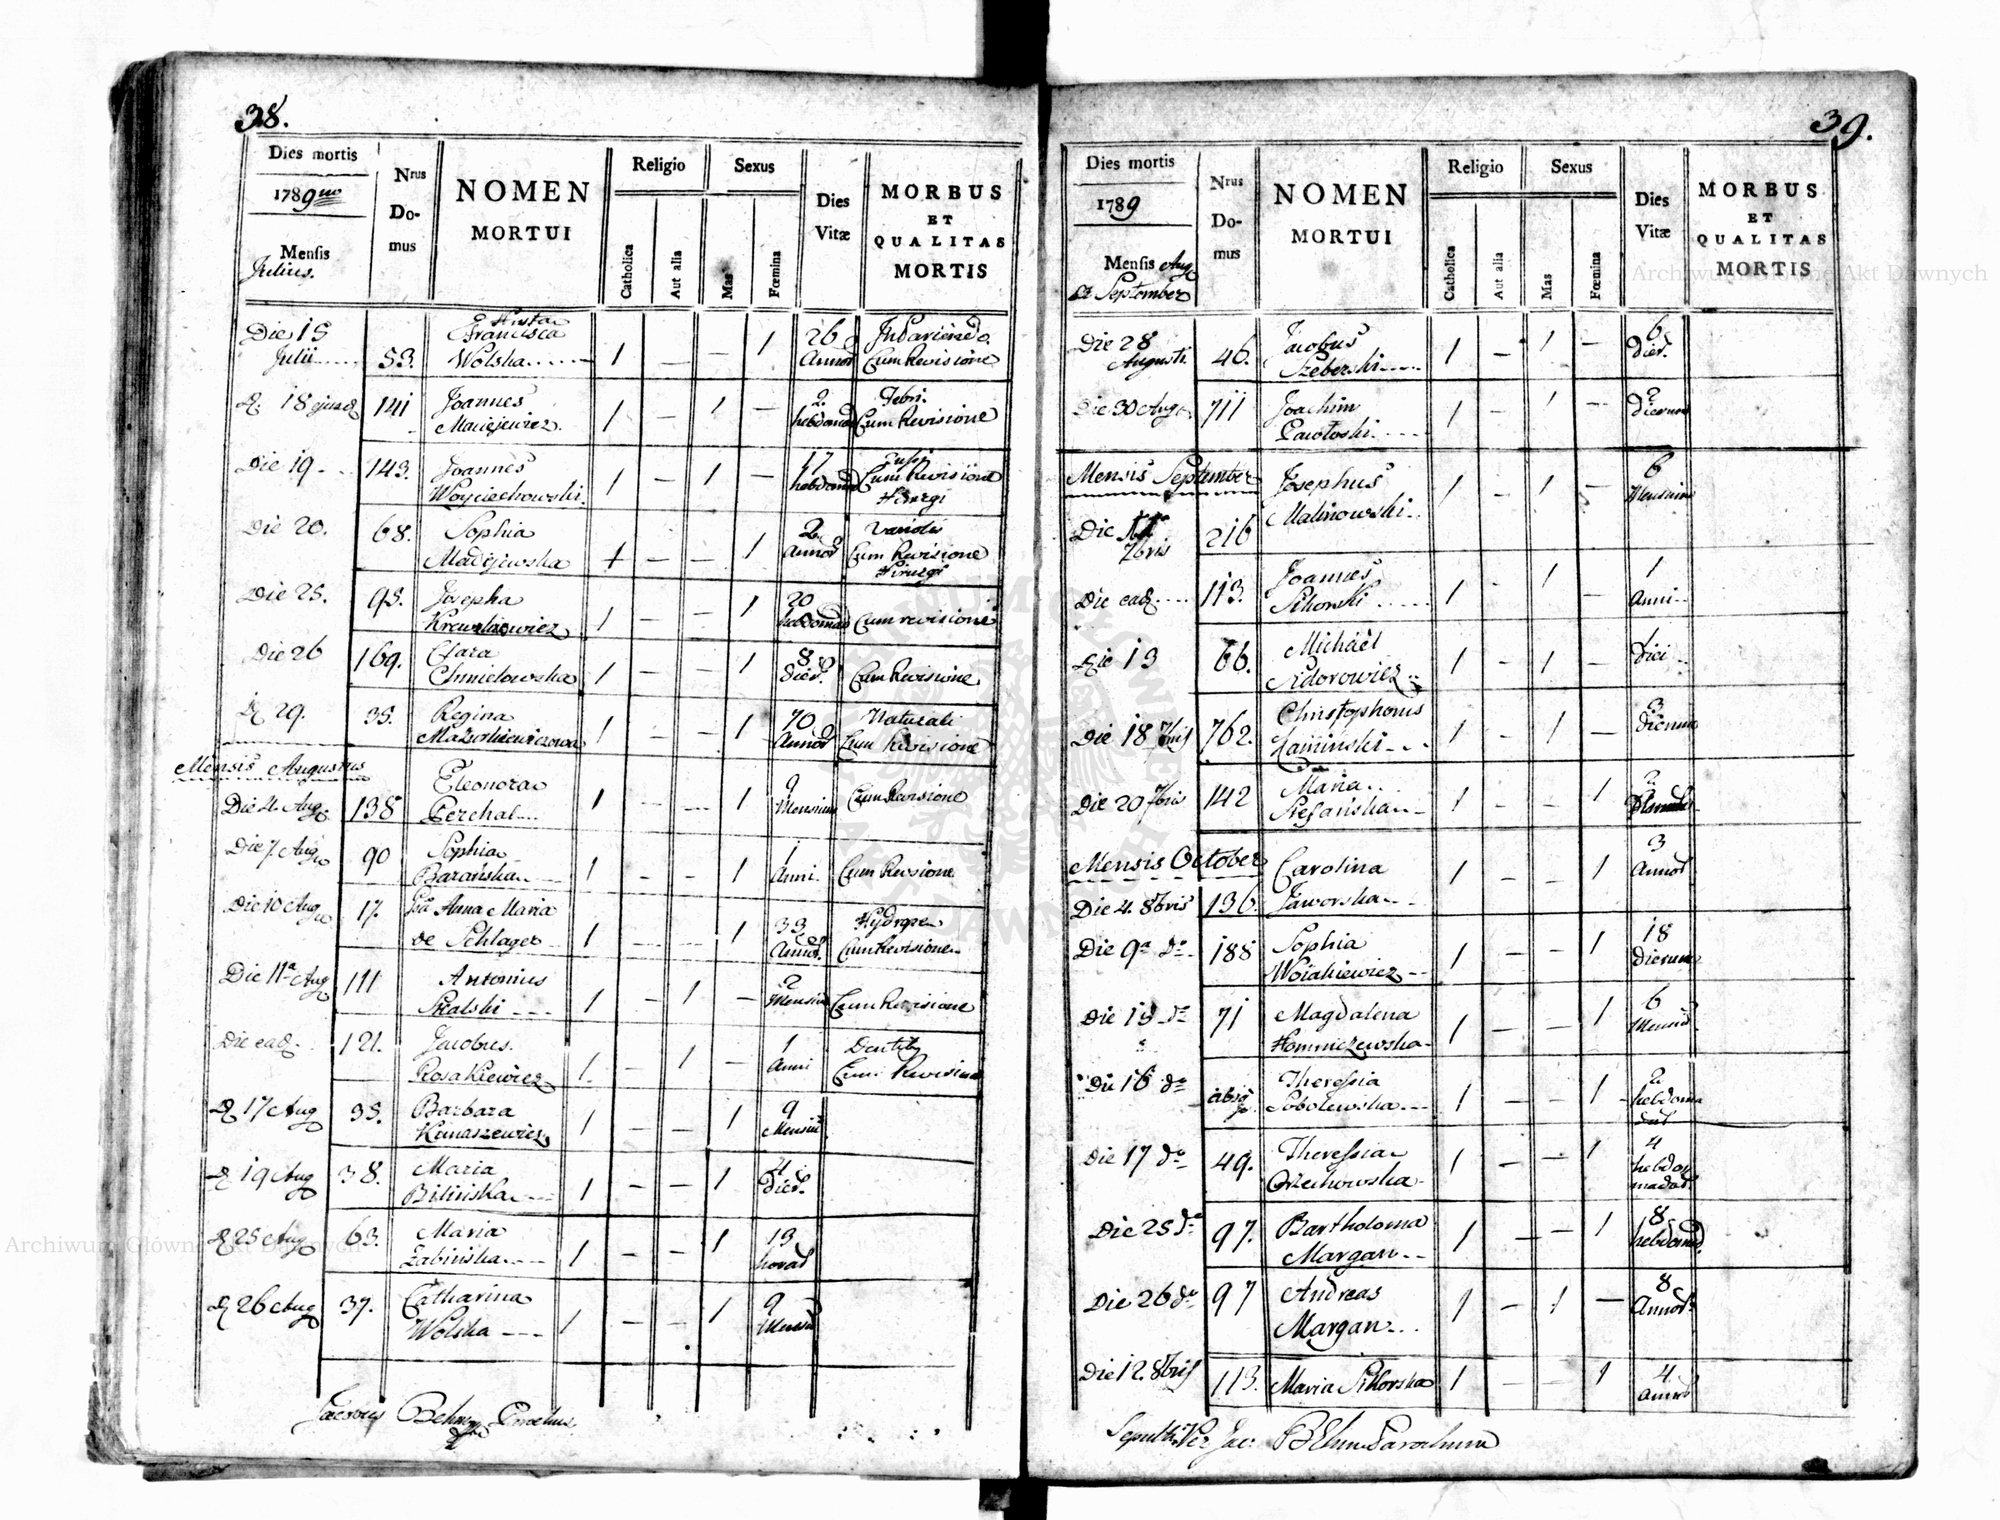 38.
Dies mortis
1789no
Mensis
Julius.
Nrus
Do-
mus
NOMEN
MORTUI
Religio
Catholica
Aut alia
Sexus
Mas
Fœmina
Dies
Vitæ
MORBUS
ET
QUALITAS
MORTIS
Die 15 Julii 53. Francisca Wolska 1 — — 1 26 Annor Cum Revisione
18 ejusd 141 Joannes Maciejewicz. 1 — 1 — 2. hebdomad Febri. Cum Revisione
Die 19 143. Joannes Woyciechowski. 1 — 1 — 17 hebdomad Cum Revisione Hirurgi
Die 20. 68. Sophia Madejewska 1 — — 1 2. Annor Variolis Cum Revisione Hirurgi
Die 25. 98. Josepha 1 — 1 20 hebdomad Cum revisione
Die 26 169. Clara Chmielowska 1 — — 1 8 Dier. Cum Revisione
29. 35. Regina 1 — — 1 70 Annor Naturali Cum Revisione
Mensis Augustus
Die 4. Aug. 138 Eleonora Perchal 1 — — 1 9 Mensium Cum Revisione
Die 7. Aug 90 Sophia Barańska 1 — — 1 1 Anni. Cum Revisione
Die 10 Aug 17. Anna Maria de Schlager 1 — — 1 33 Annor. Cum Revisione
Die 11a Aug 111 Antonius Skalski 1 — 1 — 2 Mensiu Cum Revisione
Die ead. 121. Jacobus Rosakiewicz 1 — 1 — 1 Anni Cum Revisione
17 Aug 35. Barbara 1 — — 1 9 Mensiu
19 Aug 38. Maria Bilińska 1 — — 1 4 Dier.
25 Aug 63. Maria Zabińska 1 — — 1 13 horar
26 Aug 37. Catharina Wolska 1 — — 1 9
39.
Dies mortis
1789
Mensis Aug
et September
Nrus
Do-
mus
NOMEN
MORTUI
Religio
Catholica
Aut alia
Sexus
Mas
Fœmina
Dies
Vitæ
MORBUS
ET
QUALITAS
MORTIS
Die 28 Augusti 46. Jacobus Szeberski 1 — 1 — 6 Dier.
Die 30 Aug 711 Joachim Pawłoski 1 — 1 — 2 Dierum
Mensis September
Die 7bris 216 Josephus Malinowski 1 — 1 — 6 Mensium
Die ead. 113. Joannes Sikorski 1 - 1 — 1 Anni
Die 13 66. Michäel Sidorowicz 1 — 1 — 1 Diei
Die 18 7bris 762. Christophorus Kamiński 1 — 1 — 3 Dierum
Die 20 7bris 142 Maria Stefańska 1 - - 1 2
Mensis October
Die 4. 8bris 136. Carolina Jaworska 1 — — 1 3 Annor
Die 9a do 188 Sophia Woiakiewicz 1 — — 1 18 Dierum
Die 15 do 71 Magdalena 1 — — 1 6 Mensiu
Die 16 do Theressia Sobolewska 1 — — 1 2 hebdoma
Die 17 do 49. Theressia Orzechowska 1 — — 1 4 hebdo madar.
Die 25 do 97. Bartholoma Margan 1 — — 1 8 hebdomad.
Die 26 do 97 Andreas Margan 1 — 1 — 8 Annor.
Die 12. 8bris 113. Maria Sikorska 1 — — 1 4. Annor
Parochum
Archiwum Główne Akt Dawnych
Archiwum Główne Akt Dawnych